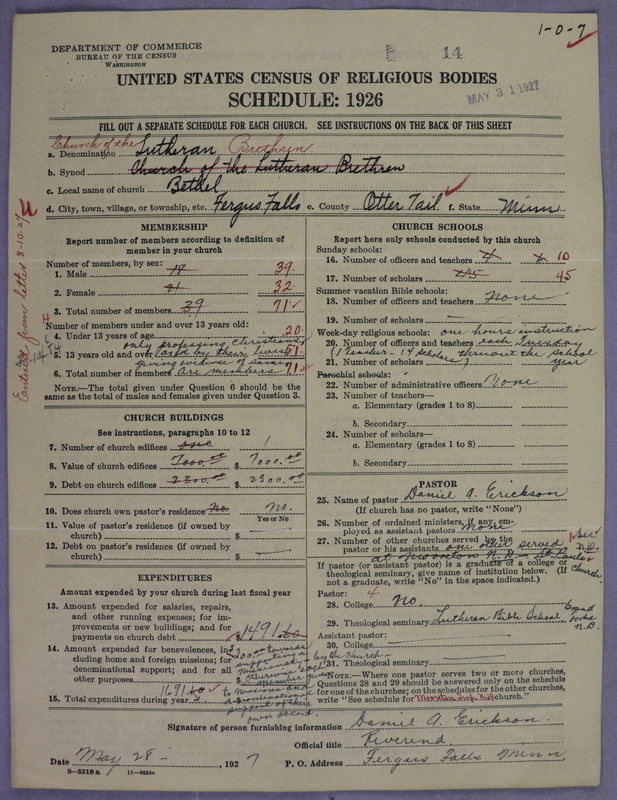 1-0-7
DEPARTMENT OF COMMERCE
BUREAU OF THE CENSUS
WASHINGTON
14
MAY 31 1927
UNITED STATES CENSUS OF RELIGIOUS BODIES
SCHEDULE: 1926
FILL OUT A SEPARATE SCHEDULE FOR EACH CHURCH. SEE INSTRUCTIONS ON THE BACK OF THIS SHEET
a. Denomination Church of the Lutheran Brethren
b. Synod Church of the Lutheran Brethren
c. Local name of church Bethel
d. City, town, village, or township, etc. Fergus Falls e. County Otter Tail f. State Minn
Entered from letter 8-10-27
MEMBERSHIP
Report number of members according to definition of
member in your church
Number of members, by sex:
1. Male 39
2. Female 32
3. Total number of members 39 71
Number of members under and over 13 years old:
4. Under 13 years of age 20
only professing Christians
5. 13 years old and over 51
6. Total number of members are members 71
NOTE.—The total given under Question 6 should be the
same as the total of males and females given under Question 3.
CHURCH BUILDINGS
See instructions, paragraphs 10 to 12
7. Number of church edifices one 1
8. Value of church edifices 7000.00 $ 7000.00
9. Debt on church edifices 2300.00 $ 2300.00
10. Does church own pastor's residence No. No.
Yes or No
11. Value of pastor's residence (if owned by
church) $
12. Debt on pastor's residence (if owned by
church) $
EXPENDITURES
Amount expended by your church during last fiscal year
13. Amount expended for salaries, repairs,
and other running expenses; for im-
provements or new buildings; and for
payments on church debt $1491.60
14. Amount expended for benevolences, in-
cluding home and foreign missions; for
denominational support; and for all
other purposes
200.00 towards
supporting a
missionary by the church
to missions and
denominational
support of their
own accord.
15. Total expenditures during year 1691.60
CHURCH SCHOOLS
Report here only schools conducted by this church
Sunday schools:
16. Number of officers and teachers 4 6 10
17. Number of scholars 45 45
Summer vacation Bible schools:
18. Number of officers and teachers none
19. Number of scholars —
Week-day religious schools: one hours instruction
20. Number of officers and teachers each Tuesday
(1 Teacher - 14 scholars) thruout the school
21. Number of scholars year
Parochial schools:
22. Number of administrative officers None
23. Number of teachers—
a. Elementary (grades 1 to 8)
b. Secondary
24. Number of scholars—
a. Elementary (grades 1 to 8)
b. Secondary
PASTOR
25. Name of pastor Daniel A. Erickson
(If church has no pastor, write "None")
26. Number of ordained ministers, if any, em-
ployed as assistant pastors none
27. Number of other churches served by the
pastor or his assistants one other served
at Mooreton N.D.
If pastor (or assistant pastor) is a graduate of a college or
theological seminary, give name of institution below. (If
not a graduate, write "No" in the space indicated.)
Pastor: 4
28. College No.
29. Theological seminary Lutheran Bible School Grand Forks N.D.
Assistant pastor:
30. College
31. Theological seminary
NOTE.—Where one pastor serves two or more churches,
Questions 28 and 29 should be answered only on the schedule
for one of the churches; on the schedules for the other churches,
write "See schedule for church."
Signature of person furnishing information Daniel A. Erickson.
Official title Reverend
Date May 28 - 1927 P. O. Address Fergus Falls Minn
8-5518 a 11-9584